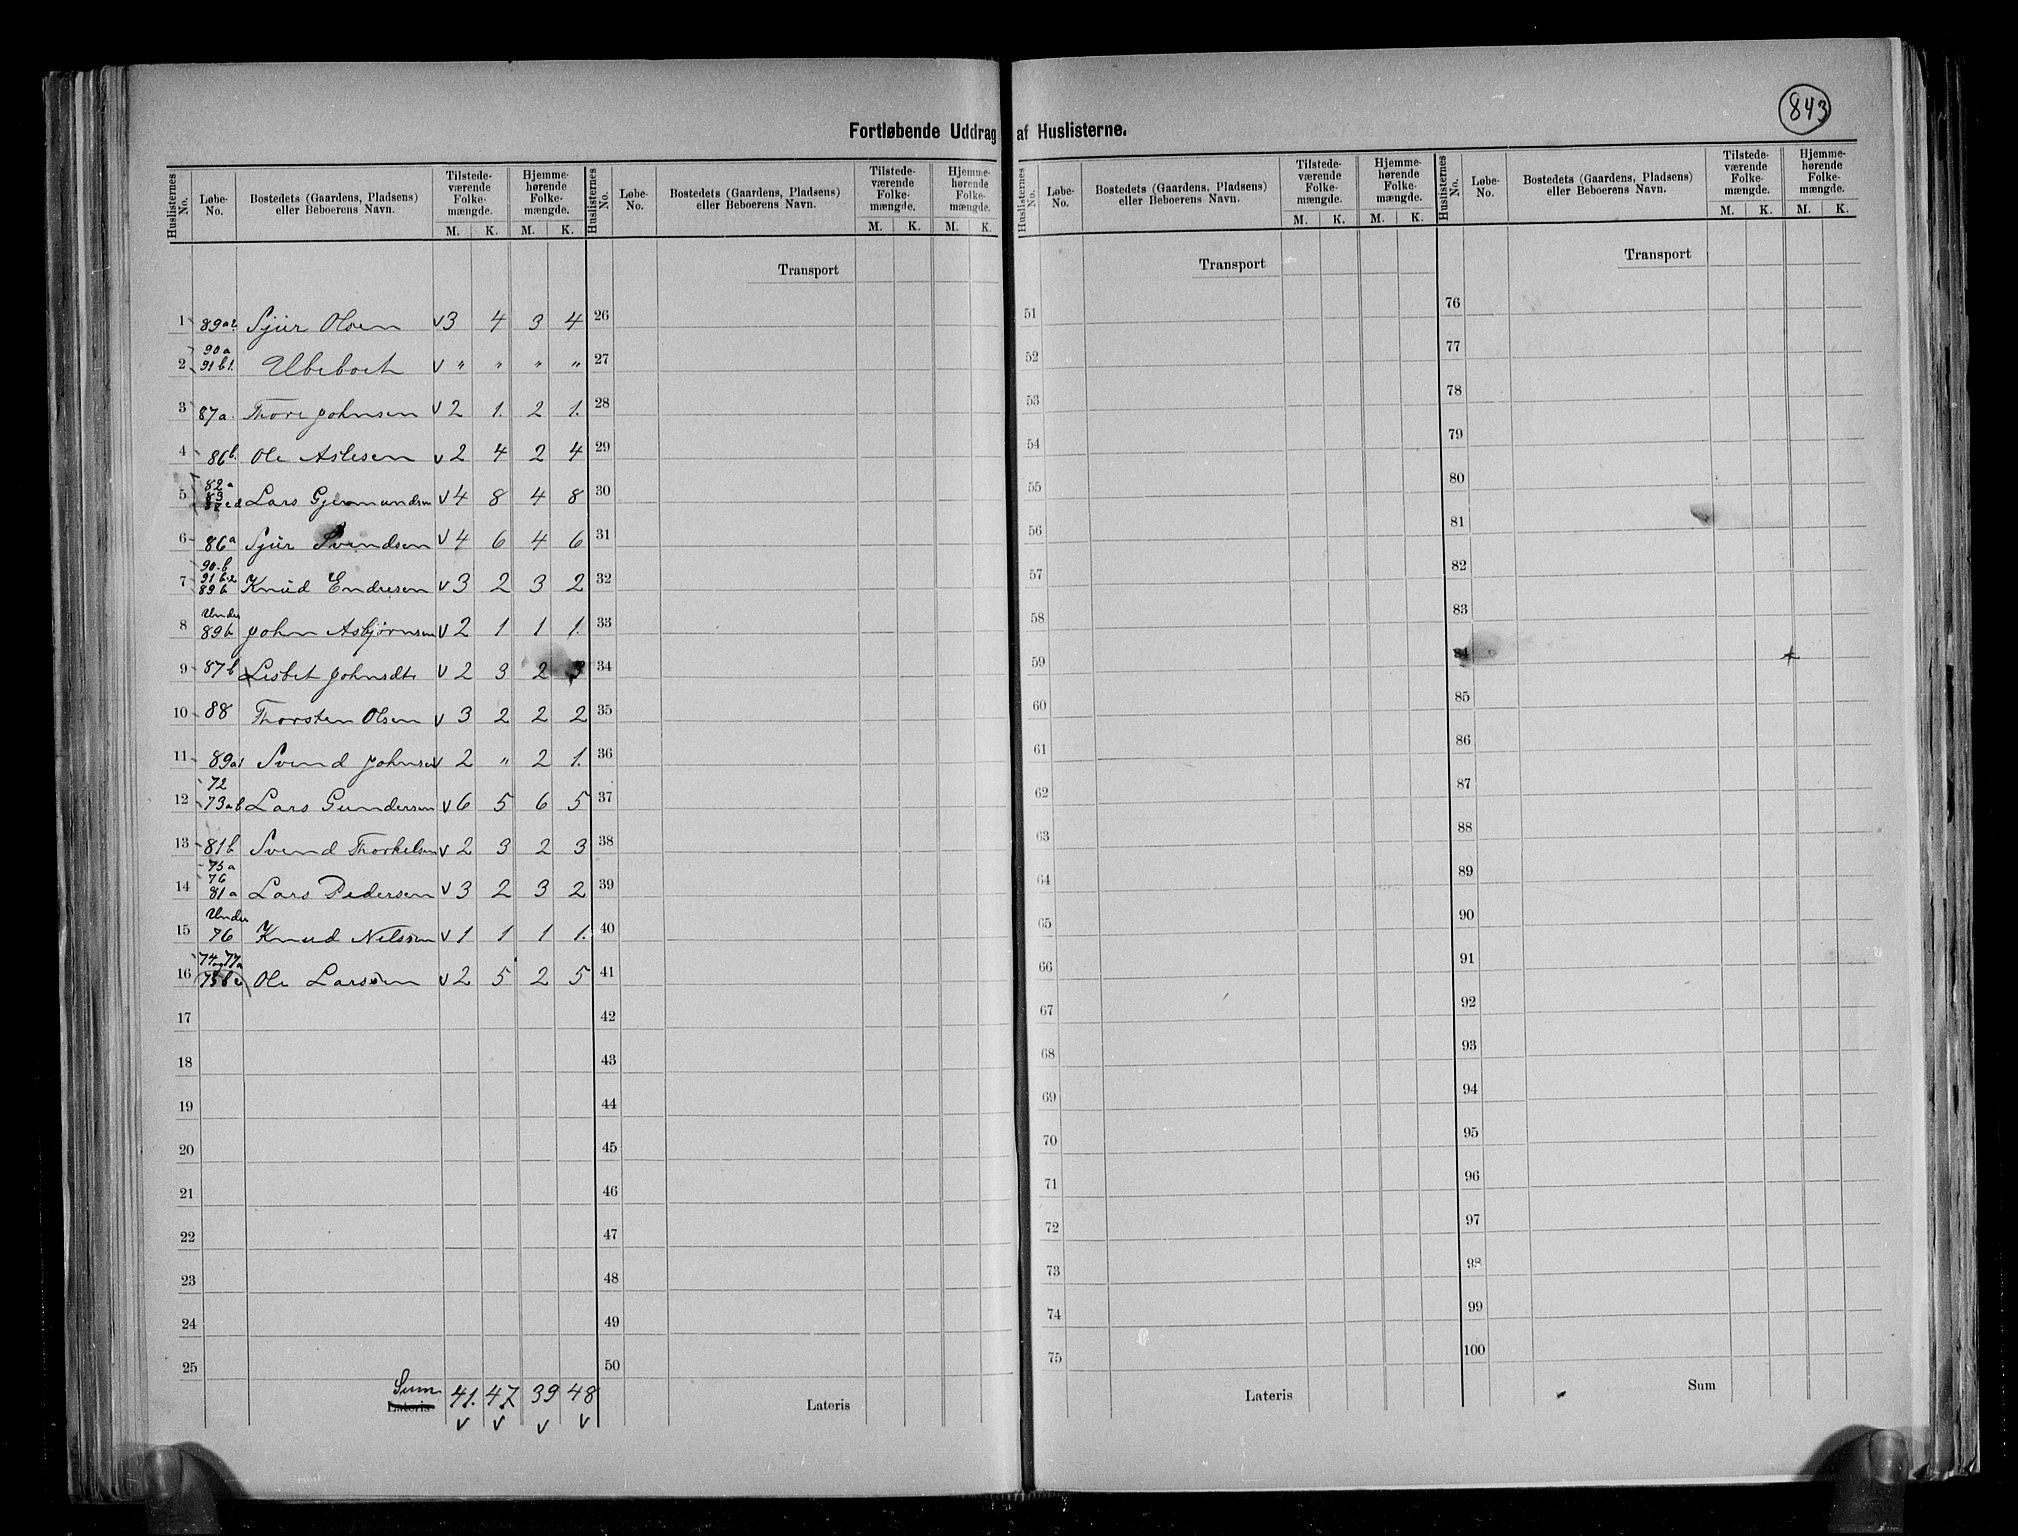 843
Fortløbende Uddrag af Huslisterne.
Huslisternes No. Løbe-No. Bostedets (Gaardens, Pladsens) eller Beboerens Navn. Tilstedeværende Folkemængde. M. K. Hjemmehørende Folkemængde. M. K.
Huslisternes No. Løbe-No. Bostedets (Gaardens, Pladsens) eller Beboerens Navn. Tilstedeværende Folkemængde. M. K. Hjemmehørende Folkemængde. M. K.
Huslisternes No. Løbe-No. Bostedets (Gaardens, Pladsens) eller Beboerens Navn. Tilstedeværende Folkemængde. M. K. Hjemmehørende Folkemængde. M. K.
Huslisternes No. Løbe-No. Bostedets (Gaardens, Pladsens) eller Beboerens Navn. Tilstedeværende Folkemængde. M. K. Hjemmehørende Folkemængde. M. K.
1 89a2 Sjur Olsen v 3 4 3 4
90a
2 91b1. Ubeboet v " " " "
3 87a. Thore Johnsen v 2 1. 2 1.
4 86b. Ole Aslesen v 2 4 2 4
82a
5 83 Lars Gjermundsen v 4 8 4 8
6 86a Sjur Svendsen v 4 6 4 6
90b
91b2
7 89b Knud Endresen v 3 2 3 2
Under
8 89b John Asbjørnsen v 2 1 1 1.
9 87b Lisbet Johnsdtr v 2 3 2 3
10 88 Thorsten Olsen v 3 2 2 2
11 89a1 Svend Johnsen v 2 " 2 1.
72
12 73ab Lars Gundersen v 6 5 6 5
13 81b Svend Thorkelsen v 2 3 2 3
75a
76
14 81a Lars Pedersen v 3 2 3 2
Under
15 76 Knud Nilsson v 1 1 1 1.
74 og 77a
16 75bc Ole Larssen v 2 5 2 5
17
18
19
20
21
22
23
24
25
Sum 41. 47 39 48
Lateris v v v v
Transport
26
27
28
29
30
31
32
33
34
35
36
37
38
39
40
41
42
43
44
45
46
47
48
49
50
Lateris
Transport
51
52
53
54
55
56
57
58
59
60
61
62
63
64
65
66
67
68
69
70
71
72
73
74
75
Lateris
Transport
76
77
78
79
80
81
82
83
84
85
86
87
88
89
90
91
92
93
94
95
96
97
98
99
100
Sum